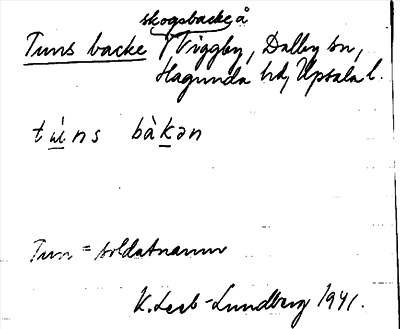 skogsbacke å
Tuns backe Viggby, Dalby sn,
Hagunda hd, Upsala l.
tú̲ns bàk̲ən
Tun = soldatnamn
K. Leeb-Lundberg 1941.